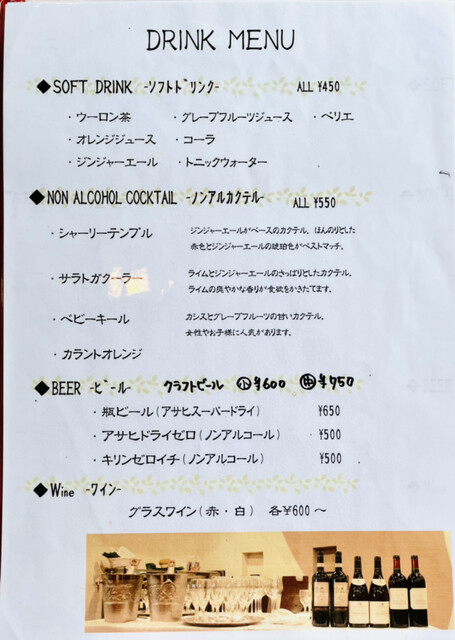 DRINK MENU
◆SOFT DRINK -ソフトドリンク- ALL ¥450
・ウーロン茶 ・グレープフルーツジュース ・ペリエ
・オレンジジュース ・コーラ
・ジンジャーエール ・トニックウォーター
◆NON ALCOHOL COCKTAIL -ノンアルカクテル- ALL ¥550
・シャーリーテンプル ジンジャーエールがベースのカクテル、ほんのりとした
赤色とジンジャーエールの琥珀色がベストマッチ。
・サラトガクーラー ライムとジンジャーエールのさっぱりとしたカクテル。
ライムの爽やかな香りが食欲をかきたてます。
・ベビーキール カシスとグレープフルーツの甘いカクテル。
女性やお子様に人気があります。
・カラントオレンジ
◆BEER -ビール- クラフトビール ㊙小¥600 ㊥¥750
・瓶ビール(アサヒスーパードライ) ¥650
・アサヒドライゼロ(ノンアルコール) ¥500
・キリンゼロイチ(ノンアルコール) ¥500
◆Wine -ワイン-
グラスワイン(赤・白) 各¥600～